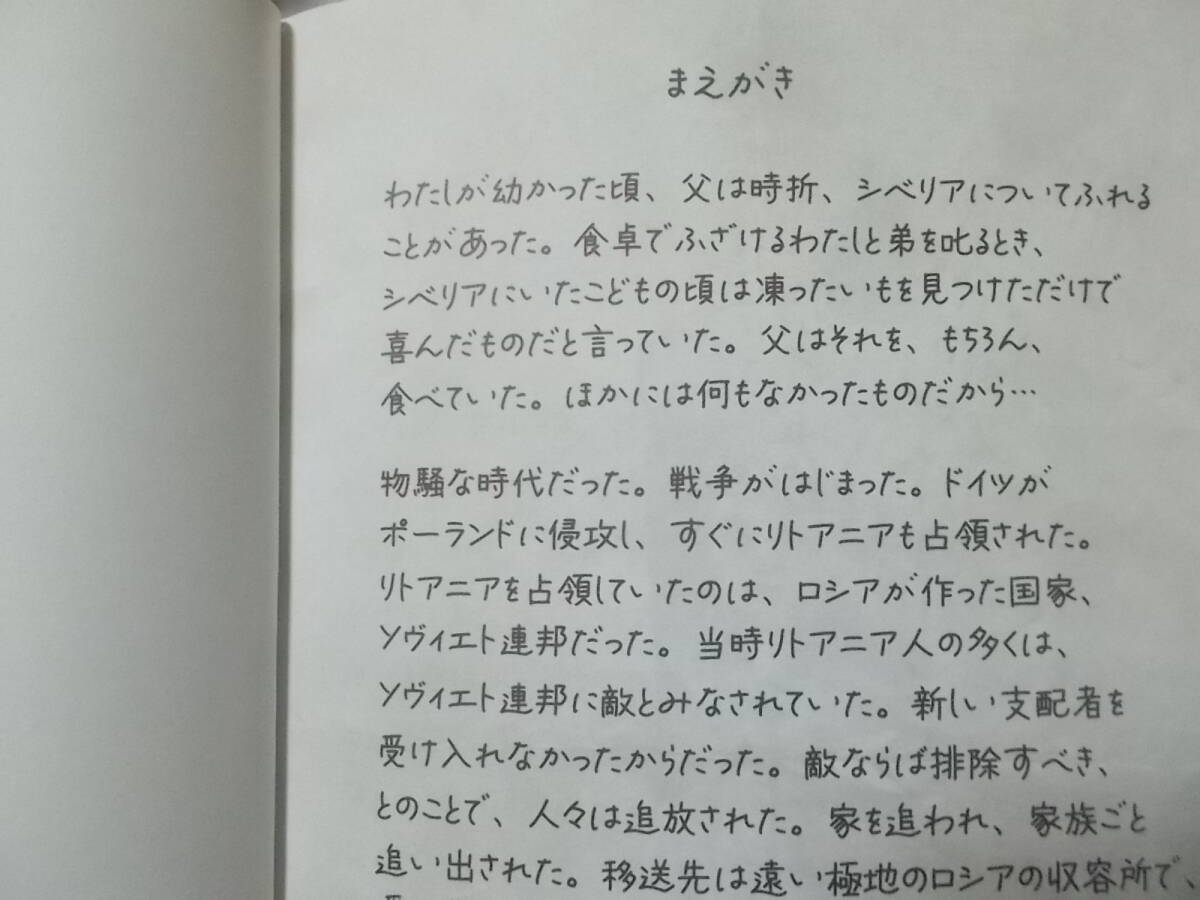 まえがき
わたしが幼かった頃、父は時折、シベリアについてふれる
ことがあった。食卓でふざけるわたしと弟を叱るとき、
シベリアにいたこどもの頃は凍ったいもを見つけただけで
喜んだものだと言っていた。父はそれを、もちろん、
食べていた。ほかには何もなかったものだから…
物騒な時代だった。戦争がはじまった。ドイツが
ポーランドに侵攻し、すぐにリトアニアも占領された。
リトアニアを占領していたのは、ロシアが作った国家、
ソヴィエト連邦だった。当時リトアニア人の多くは、
ソヴィエト連邦に敵とみなされていた。新しい支配者を
受け入れなかったからだった。敵ならば排除すべき、
とのことで、人々は追放された。家を追われ、家族ごと
追い出された。移送先は遠い極地のロシアの収容所で、